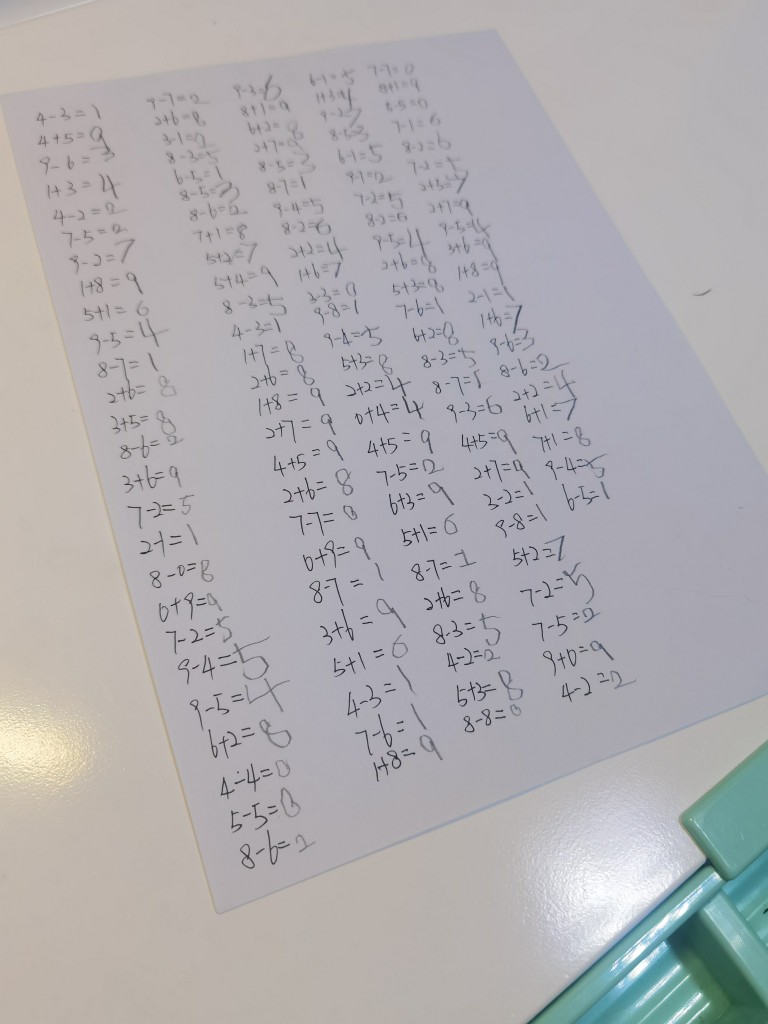 4-3=1
4+5=9
9-6=3
1+3=4
4-2=2
7-5=2
9-2=7
1+8=9
5+1=6
9-5=4
8-7=1
2+6=8
3+5=8
8-6=2
3+6=9
7-2=5
2-1=1
8-0=8
0+9=9
7-2=5
9-4=5
9-5=4
6+2=8
4-4=0
5-5=0
8-6=2
9-7=2
2+6=8
3-1=2
8-3=5
6-5=1
8-5=3
8-6=2
7+1=8
5+2=7
5+4=9
8-3=5
4-3=1
1+7=8
2+6=8
1+8=9
2+7=9
4+5=9
2+6=8
7-7=0
0+9=9
8-7=1
3+6=9
5+1=6
4-3=1
7-6=1
1+8=9
9-3=6
8+1=9
6+2=8
2+7=9
8-5=3
8-7=1
9-4=5
8-2=6
2+2=4
1+6=7
3-3=0
9-8=1
9-4=5
5+3=8
2+2=4
0+4=4
4+5=9
7-5=2
6+3=9
5+1=6
8-7=1
2+6=8
8-3=5
4-2=2
5+3=8
8-8=0
6-1=5
1+3=4
9-2=7
6-1=5
7-2=5
8-2=6
9-5=4
2+6=8
5+3=8
7-6=1
6+2=8
8-3=5
8-7=1
9-3=6
4+5=9
2+7=9
3-2=1
9-8=1
5+2=7
7-2=5
7-5=2
9+0=9
4-2=2
7-7=0
8+1=9
7-1=6
8-2=6
7-2=5
2+5=7
2+7=9
9-5=4
3+6=9
1+8=9
2-1=1
1+6=7
9-6=3
8-6=2
2+2=4
6+1=7
7+1=8
9-4=5
6-5=1